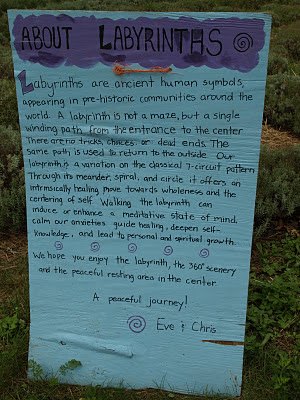 ABOUT LABYRINTHS
Labyrinths are ancient human symbols,
appearing in pre-historic communities around the
world. A labyrinth is not a maze, but a single
winding path from the entrance to the center.
There are no tricks, choices, or dead ends. The
same path is used to return to the outside. Our
labyrinth is a variation on the classical 7-circuit pattern.
Through its meander, spiral, and circle it offers an
intrinsically healing move towards wholeness and the
centering of self. Walking the labyrinth can
induce or enhance a meditative state of mind,
calm our anxieties, guide healing, deepen self-
knowledge, and lead to personal and spiritual growth.
We hope you enjoy the labyrinth, the 360° scenery
and the peaceful resting area in the center.
A peaceful journey!
Eve & Chris